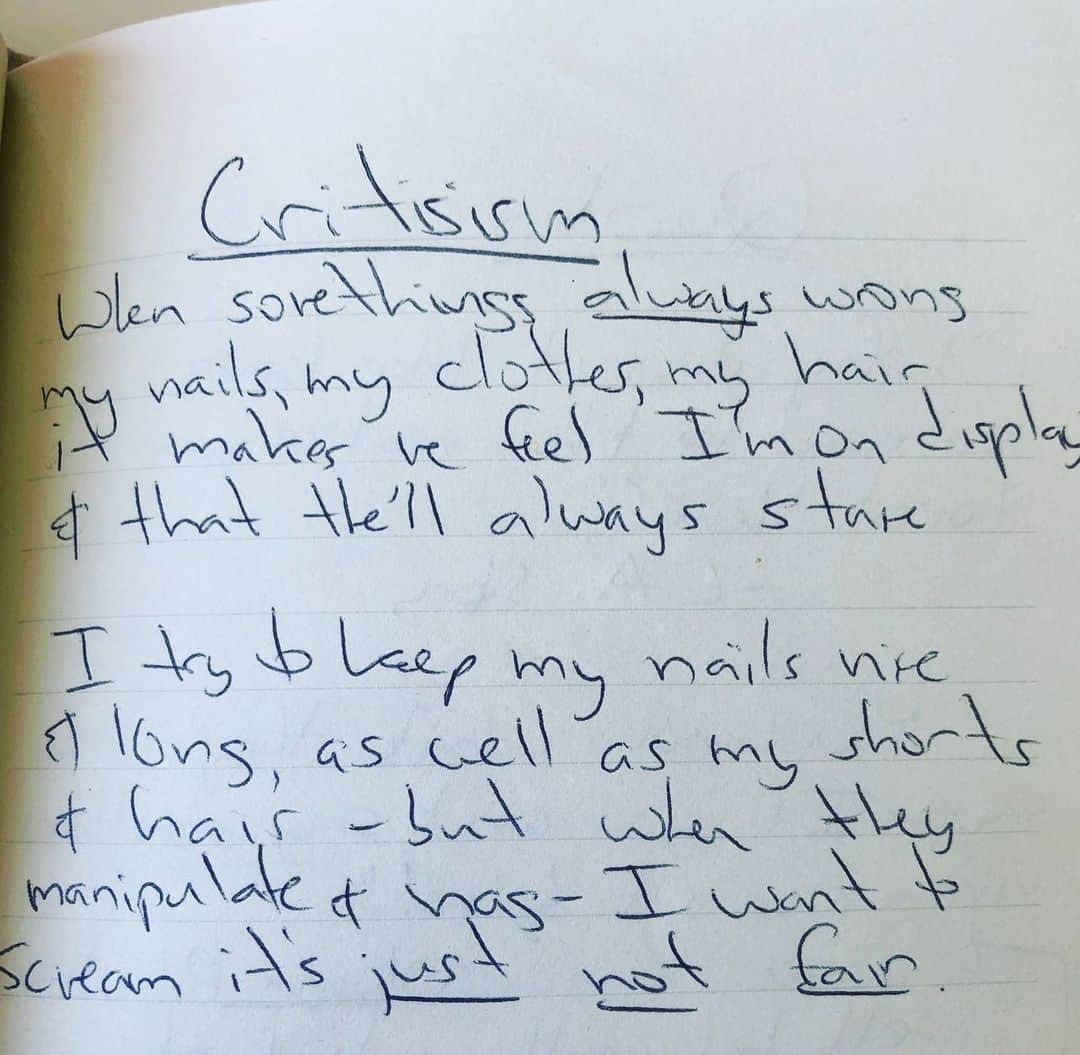 Critisism
When somethings always wrong
my nails, my clothes, my hair
it makes me feel I'm on display
& that the'll always stare
I try to keep my nails nice
& long, as well as my shorts
& hair - but when they
manipulate & nag - I want to
scream it's just not fair.